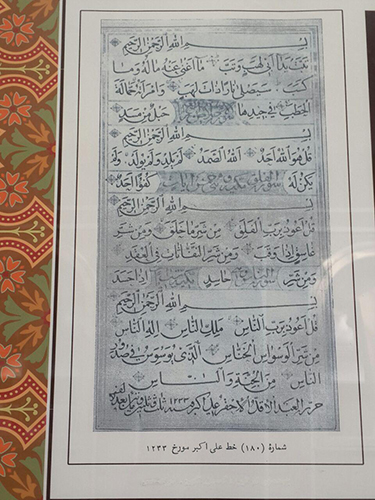 بسم الله الرحمن الرحيم
تبت يدا ابى لهب وتب ما اغنى عنه ماله وما
كسب سيصلى نارا ذات لهب وامرأته حمالة
الحطب فى جيدها حبل من مسد
بسم الله الرحمن الرحيم
قل هو الله احد الله الصمد لم يلد ولم يولد ولم
يكن له كفوا احد
بسم الله الرحمن الرحيم
قل اعوذ برب الفلق من شر ما خلق ومن شر
غاسق اذا وقب ومن شر النفاثات فى العقد
ومن شر حاسد اذا حسد
بسم الله الرحمن الرحيم
قل اعوذ برب الناس ملك الناس اله الناس
من شر الوسواس الخناس الذى يوسوس فى صدور
الناس من الجنة والناس
حرره العبد الاقل الاحقر على اكبر فى سنه ١٢٣٣
شماره (١٨٠) خط على اكبر مورخ ١٢٣٣